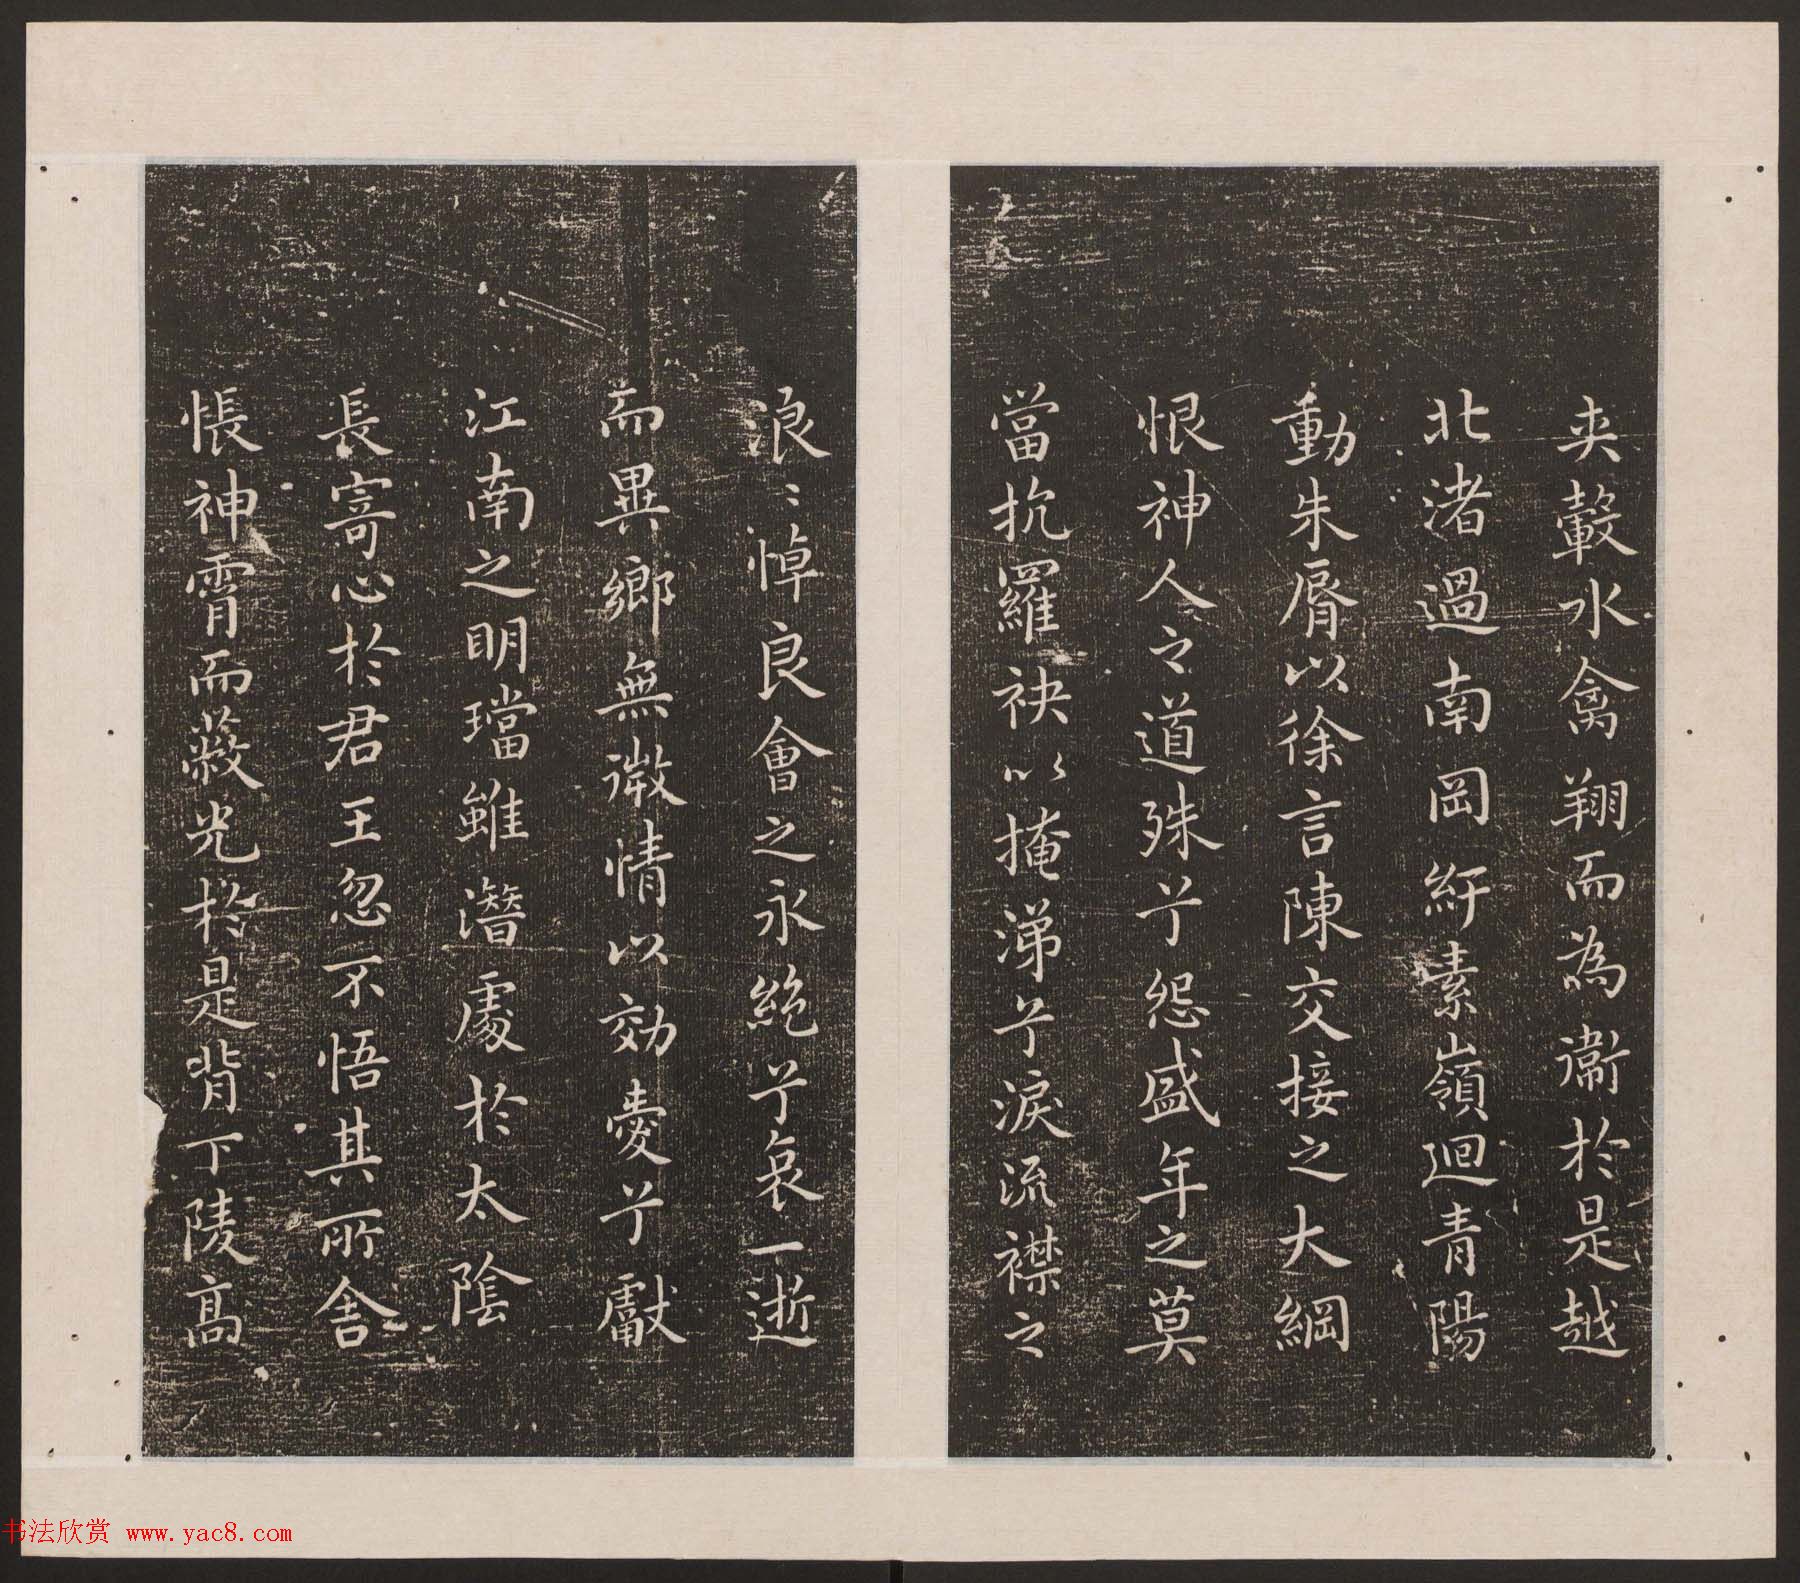 夾轂水禽翔而為衞於是越
北渚過南岡紆素嶺迴青陽
動朱脣以徐言陳交接之大綱
恨神人之道殊兮怨盛年之莫
當抗羅袂以掩涕兮淚流襟之
浪〻悼良會之永絶兮哀一逝
而異鄉無微情以効愛兮獻
江南之明璫雖潛處於太陰
長寄心於君王忽不悟其所舍
悵神霄而蔽光於是背下陵高
书法欣赏 www.yac8.com